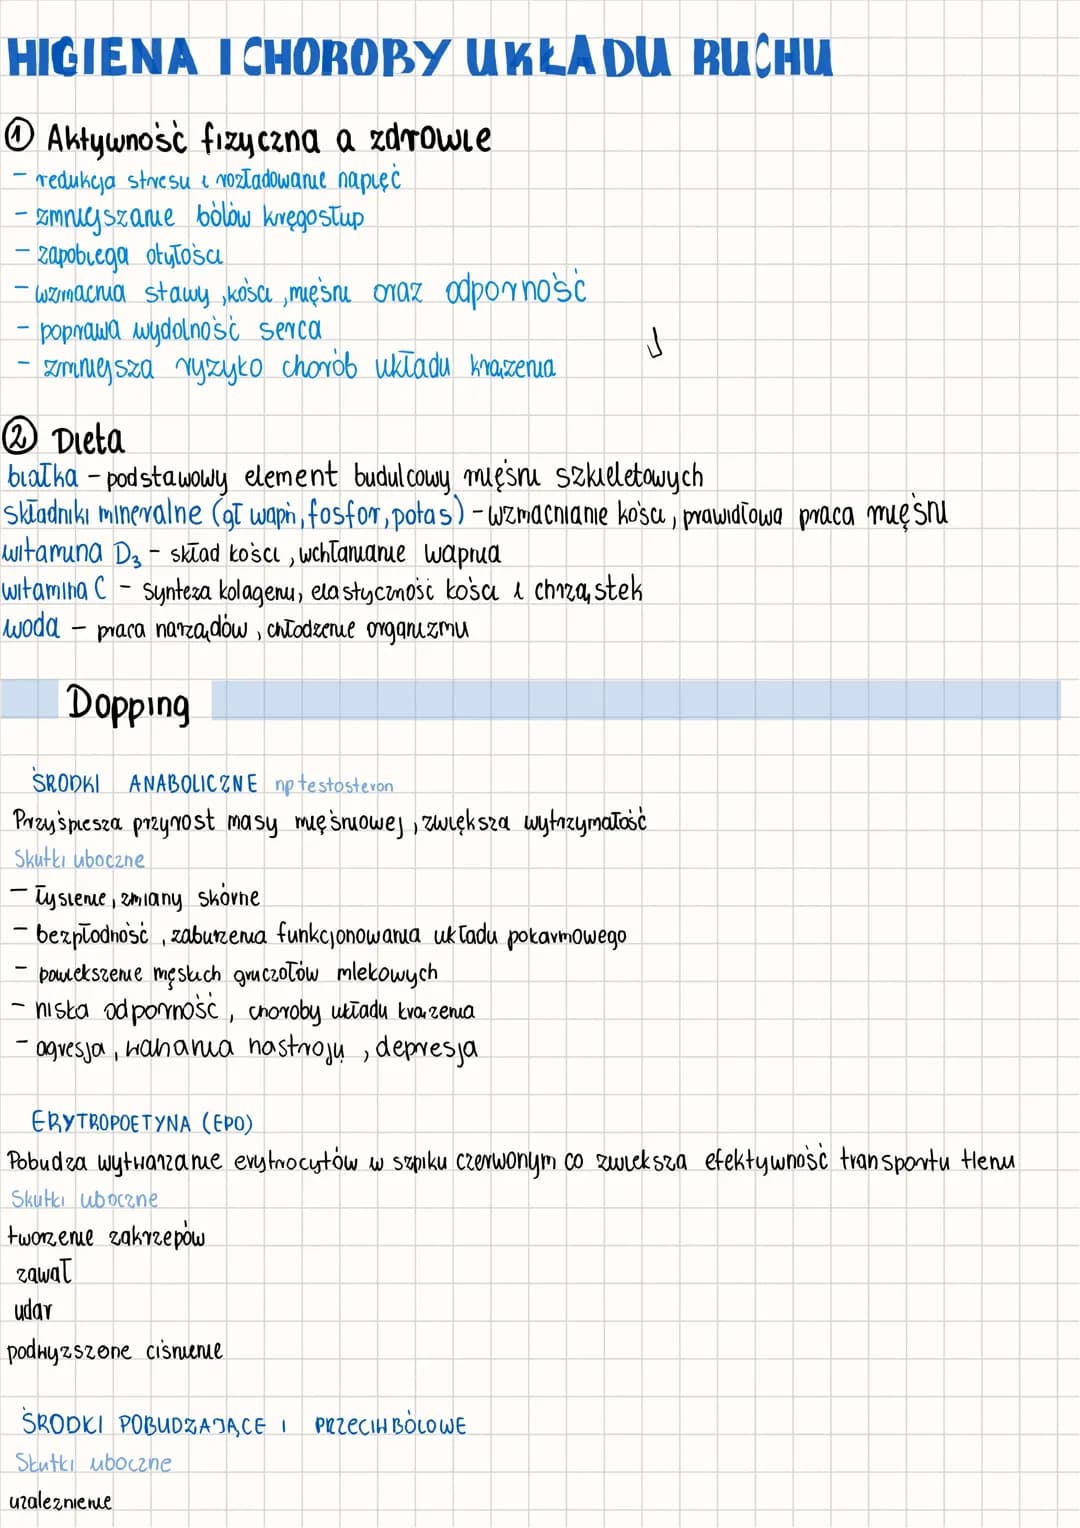 HIGIENA I CHOROBY UKŁADU RUCHU
① Aktywność fizyczna a zdrowie
- redukcja stresu i rozładowanie napięć
- zmniejszanie bólów kręgosłup
- zapobiega otyłości
- wzmacnia stawy, kości, mięśni oraz odporność
- poprawa wydolność serca
- zmniejsza ryzyko chorób układu krążenia
② Dieta
białka - podstawowy element budulcowy mięśni szkieletowych
składniki mineralne (gł wapń, fosfor, potas) - wzmacnianie kości, prawidłowa praca mięśni
witamina D₃ - skład kości, wchłanianie wapnia
witamina C - synteza kolagenu, elastyczność kości i chrząstek
woda - praca narządów, chłodzenie organizmu
Dopping
ŚRODKI ANABOLICZNE np testosteron
Przyśpiesza przyrost masy mięśniowej, zwiększa wytrzymałość
Skutki uboczne
- łysienie, zmiany skórne
- bezpłodność, zaburzenia funkcjonowania układu pokarmowego
- powiekszenie męskich gruczołów mlekowych
- niska odporność, choroby układu krążenia
- agresja, wahania nastroju, depresja
ERYTROPOETYNA (EPO)
Pobudza wytwarzanie erytrocytów w szpiku czerwonym co zwieksza efektywność transportu tlenu
Skutki uboczne
tworzenie zakrzepów
zawał
udar
podwyższone ciśnienie
ŚRODKI POBUDZAJĄCE I PRZECIWBÓLOWE
Skutki uboczne
uzaleznienie